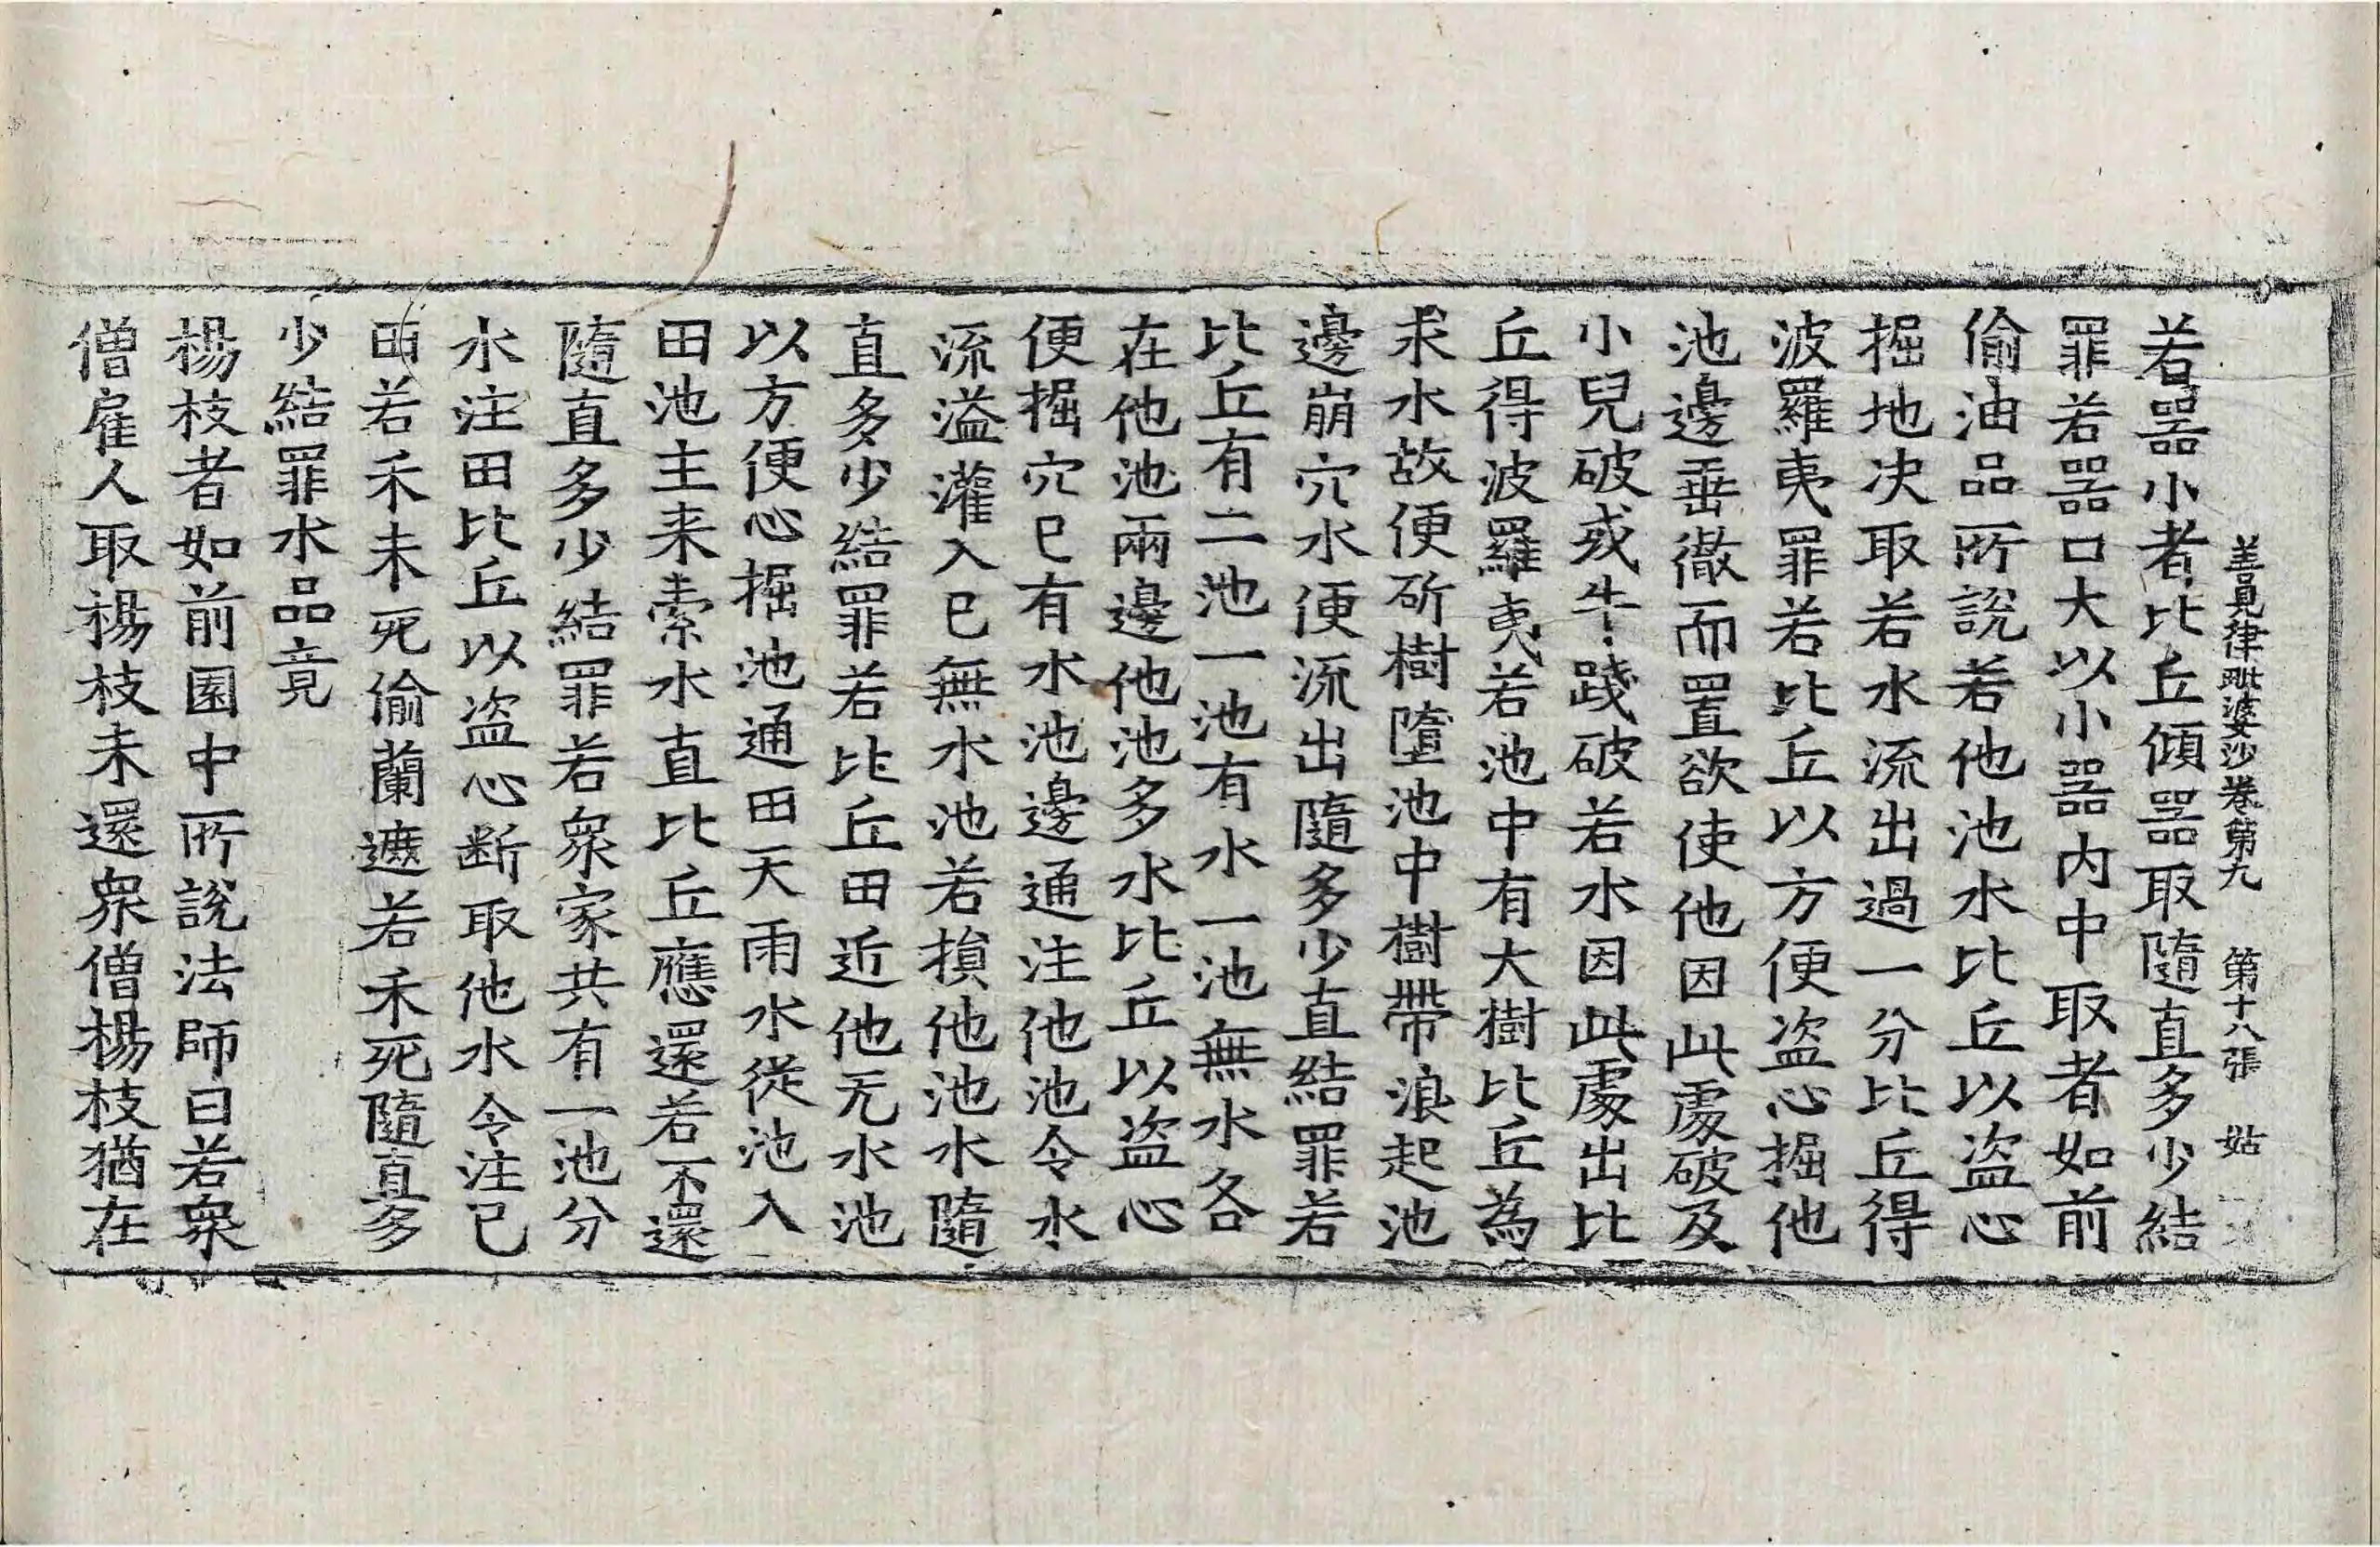 善見律毗婆沙卷第九 第十八張 姑
若器小者比丘傾器取隨直多少結
罪若器口大以小器內中取者如前
偷油品所說若他池水比丘以盜心
掘地决取若水流出過一分比丘得
波羅夷罪若比丘以方便盜心掘他
池邊垂徹而置欲使他因此處破及
小兒破或牛踐破若水因此處出比
丘得波羅夷若池中有大樹比丘為
求水故便斫樹墮池中樹帶浪起池
邊崩穴水便流出隨多少直結罪若
比丘有二池一池有水一池無水各
在他池兩邊他池多水比丘以盜心
便掘穴已有水池邊通注他池令水
流溢灌入已無水池若損他池水隨
直多少結罪若比丘田近他无水池
以方便心掘池通田天雨水從池入
田池主来索水直比丘應還若不還
隨直多少結罪若衆家共有一池分
水注田比丘以盜心断取他水令注已
田若禾未死偷蘭遮若禾死隨直多
少結罪水品竟
楊枝者如前園中所說法師曰若衆
僧雇人取楊枝未還衆僧楊枝猶在